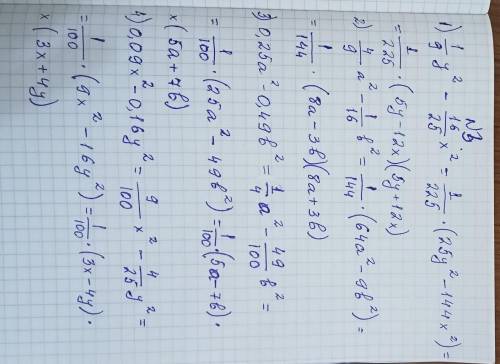 N3.
1) 1/9 y² - 16/25 x² = 1/225 · (25y² - 144x²) =
= 1/225 · (5y - 12x)(5y + 12x)
2) 4/9 a² - 1/16 b² = 1/144 · (64a² - 9b²) =
= 1/144 · (8a - 3b)(8a + 3b)
3) 0,25a² - 0,49b² = 1/4 a² - 49/100 b² =
= 1/100 · (25a² - 49b²) = 1/100 · (5a - 7b) ·
× (5a + 7b)
4) 0,09x² - 0,16y² = 9/100 x² - 4/25 y² =
= 1/100 · (9x² - 16y²) = 1/100 · (3x - 4y) ·
× (3x + 4y)